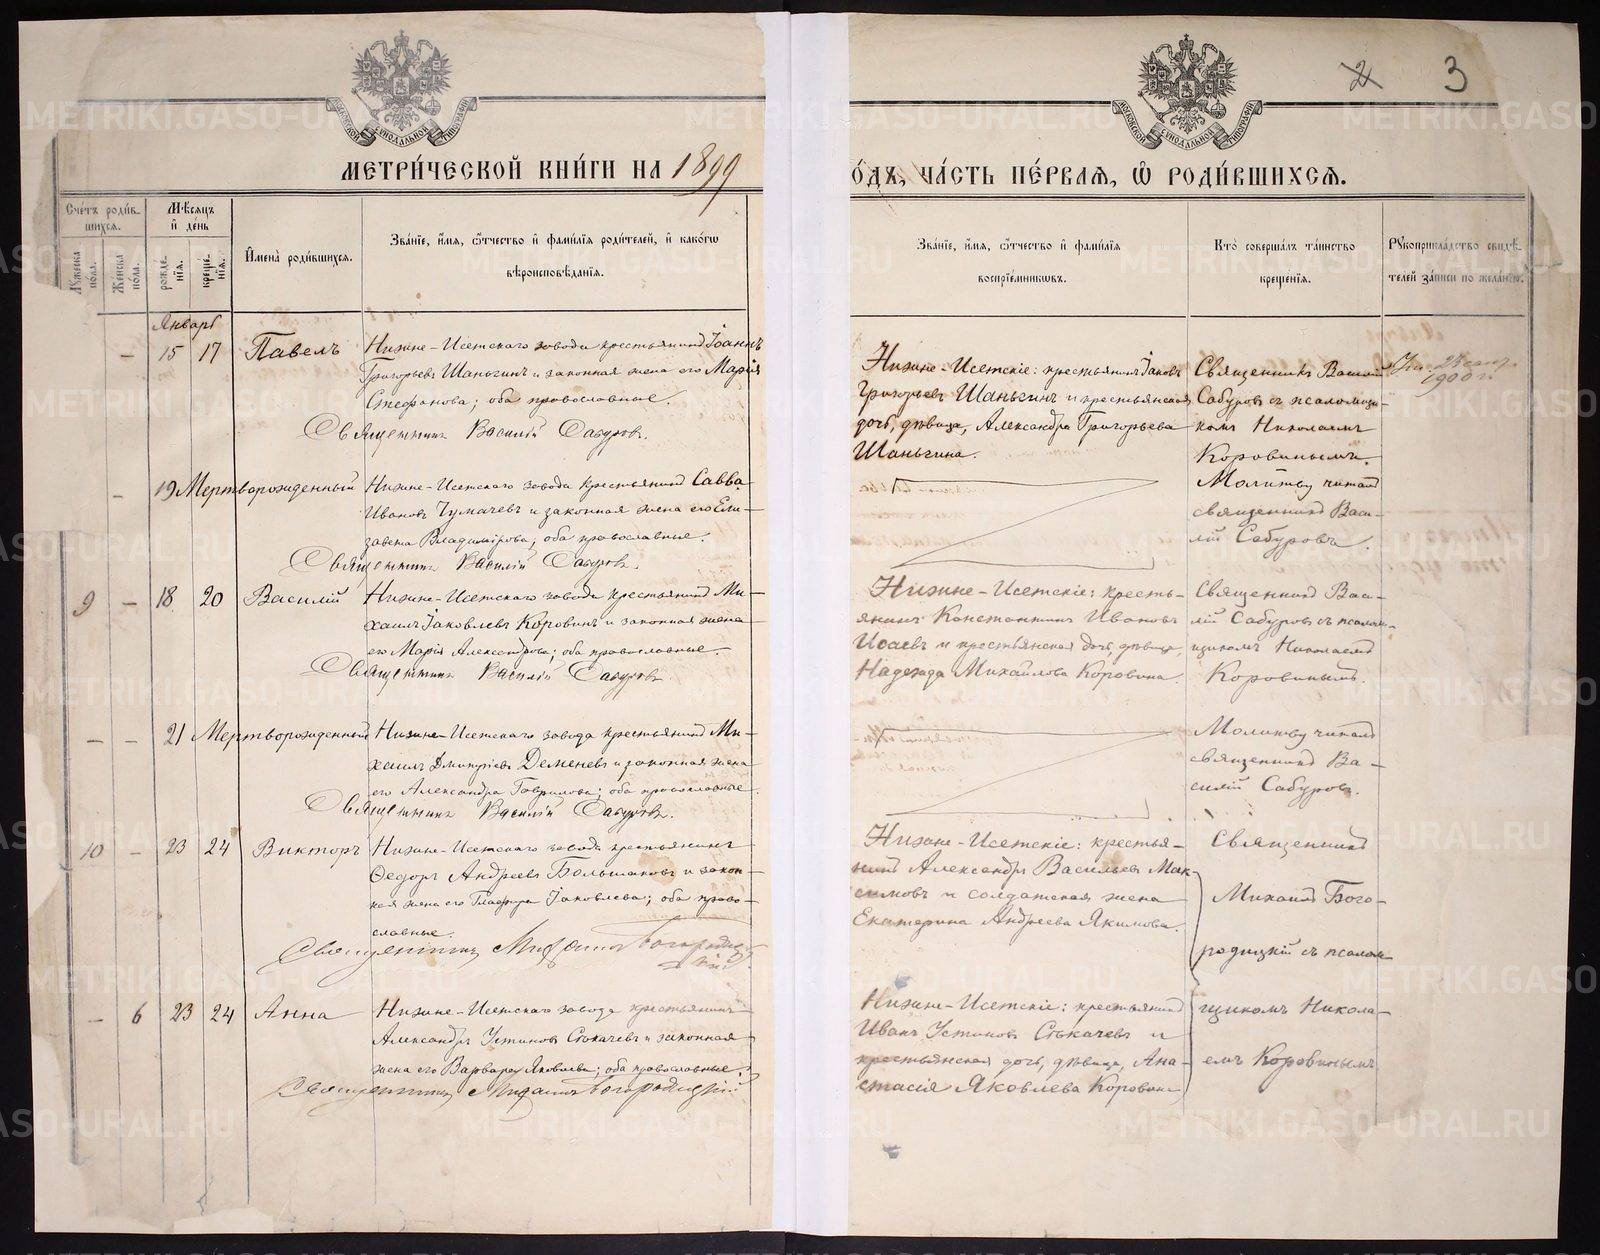 2 3
МОСКОВСКОЙ СѴНОДАЛЬНОЙ ТИПОГРАФІИ
МОСКОВСКОЙ СѴНОДАЛЬНОЙ ТИПОГРАФІИ
МЕТРИ́ЧЕСКОЙ КНИ́ГИ НА 1899
О́ДЪ, ЧА́СТЬ ПЕ́РВАЯ, Ѽ РОДИ́ВШИХСЯ.
Сче́тъ роди́в-
шихся.
Мꙋ́жеска по́ла.
Же́нска по́ла.
Мѣ́сяцъ
и҆ де́нь
рожде-
нїя.
креще́-
нїя.
И҆мена̀ роди́вшихся.
Зва́нїе, и҆́мя, ѻ҆́тчество и҆ фами́лїя роди́телей, и҆ како́гѡ
вѣроисповѣ́данїя.
Зва́нїе, и҆́мя, ѻ҆́тчество и҆ фами́лїя
воспрїе́мникѡвъ.
Кто̀ соверша́лъ та́инство
креще́нїя.
Рꙋкоприкла́дство свидѣ́-
телей за́писи по жела́нїю.
Январь
– 15 17 Павелъ
Нижне-Исетскаго завода крестьянинъ Іоаннъ
Григорьевъ Шаньгинъ и законная жена его Марія
Стефанова; оба православные.
Священникъ Василій Сабуровъ.
Нижне-Исетскіе: крестьянинъ Іаковъ
Григорьевъ Шаньгинъ и крестьянская
дочь, дѣвица, Александра Григорьева
Шаньгина.
Священникъ Василій
Сабуровъ съ псаломщи-
комъ Николаемъ
Коровинымъ.
1900 г.
– 19 Мертворожденный
Нижне-Исетскаго завода крестьянинъ Савва
Ивановъ Чумачевъ и законная жена его Ели-
завета Владимірова; оба православные.
Священникъ Василій Сабуровъ.
Молитву читалъ
священникъ Васи-
лій Сабуровъ.
9 – 18 20 Василій
Нижне-Исетскаго завода крестьянинъ Ми-
хаилъ Іаковлевъ Коровинъ и законная жена
его Марія Александрова; оба православные.
Священникъ Василій Сабуровъ
Нижне-Исетскіе: кресть-
янинъ Константинъ Ивановъ
Исаевъ и крестьянская дочь, дѣвица
Надежда Михайлова Коровина.
Священникъ Васи-
лій Сабуровъ съ псалом-
щикомъ Николаемъ
Коровинымъ.
– – 21 Мертворожденный
Нижне-Исетскаго завода крестьянинъ Ми-
хаилъ Дмитріевъ Деменевъ и законная жена
его Александра Гаврилова; оба православные.
Священникъ Василій Сабуровъ.
Молитву читалъ
священникъ Ва-
силій Сабуровъ.
10 – 23 24 Викторъ
Нижне-Исетскаго завода крестьянинъ
Ѳедоръ Андреевъ Большаковъ и закон-
ная жена его Глафира Іаковлева; оба право-
славные.
Священникъ Михаилъ Богородиц-
кій
Нижне-Исетскіе: крестья-
нинъ Александръ Васильевъ Мак-
симовъ и солдатская жена
Екатерина Андреева Якимова.
Священникъ
Михаилъ Бого-
родицкій съ псалом-
– 6 23 24 Анна
Нижне-Исетскаго завода крестьянинъ
Александръ Устиновъ Стькачевъ и законная
жена его Варвара Яковлева; оба православные.
Священникъ Михаилъ Богородицкій
Нижне-Исетскіе: крестьянинъ
Иванъ Устиновъ Стькачевъ и
крестьянская дочь, дѣвица, Ана-
стасія Яковлева Коровина
щикомъ Никола-
емъ Коровинымъ
METRIKI.GASO-URAL.RU